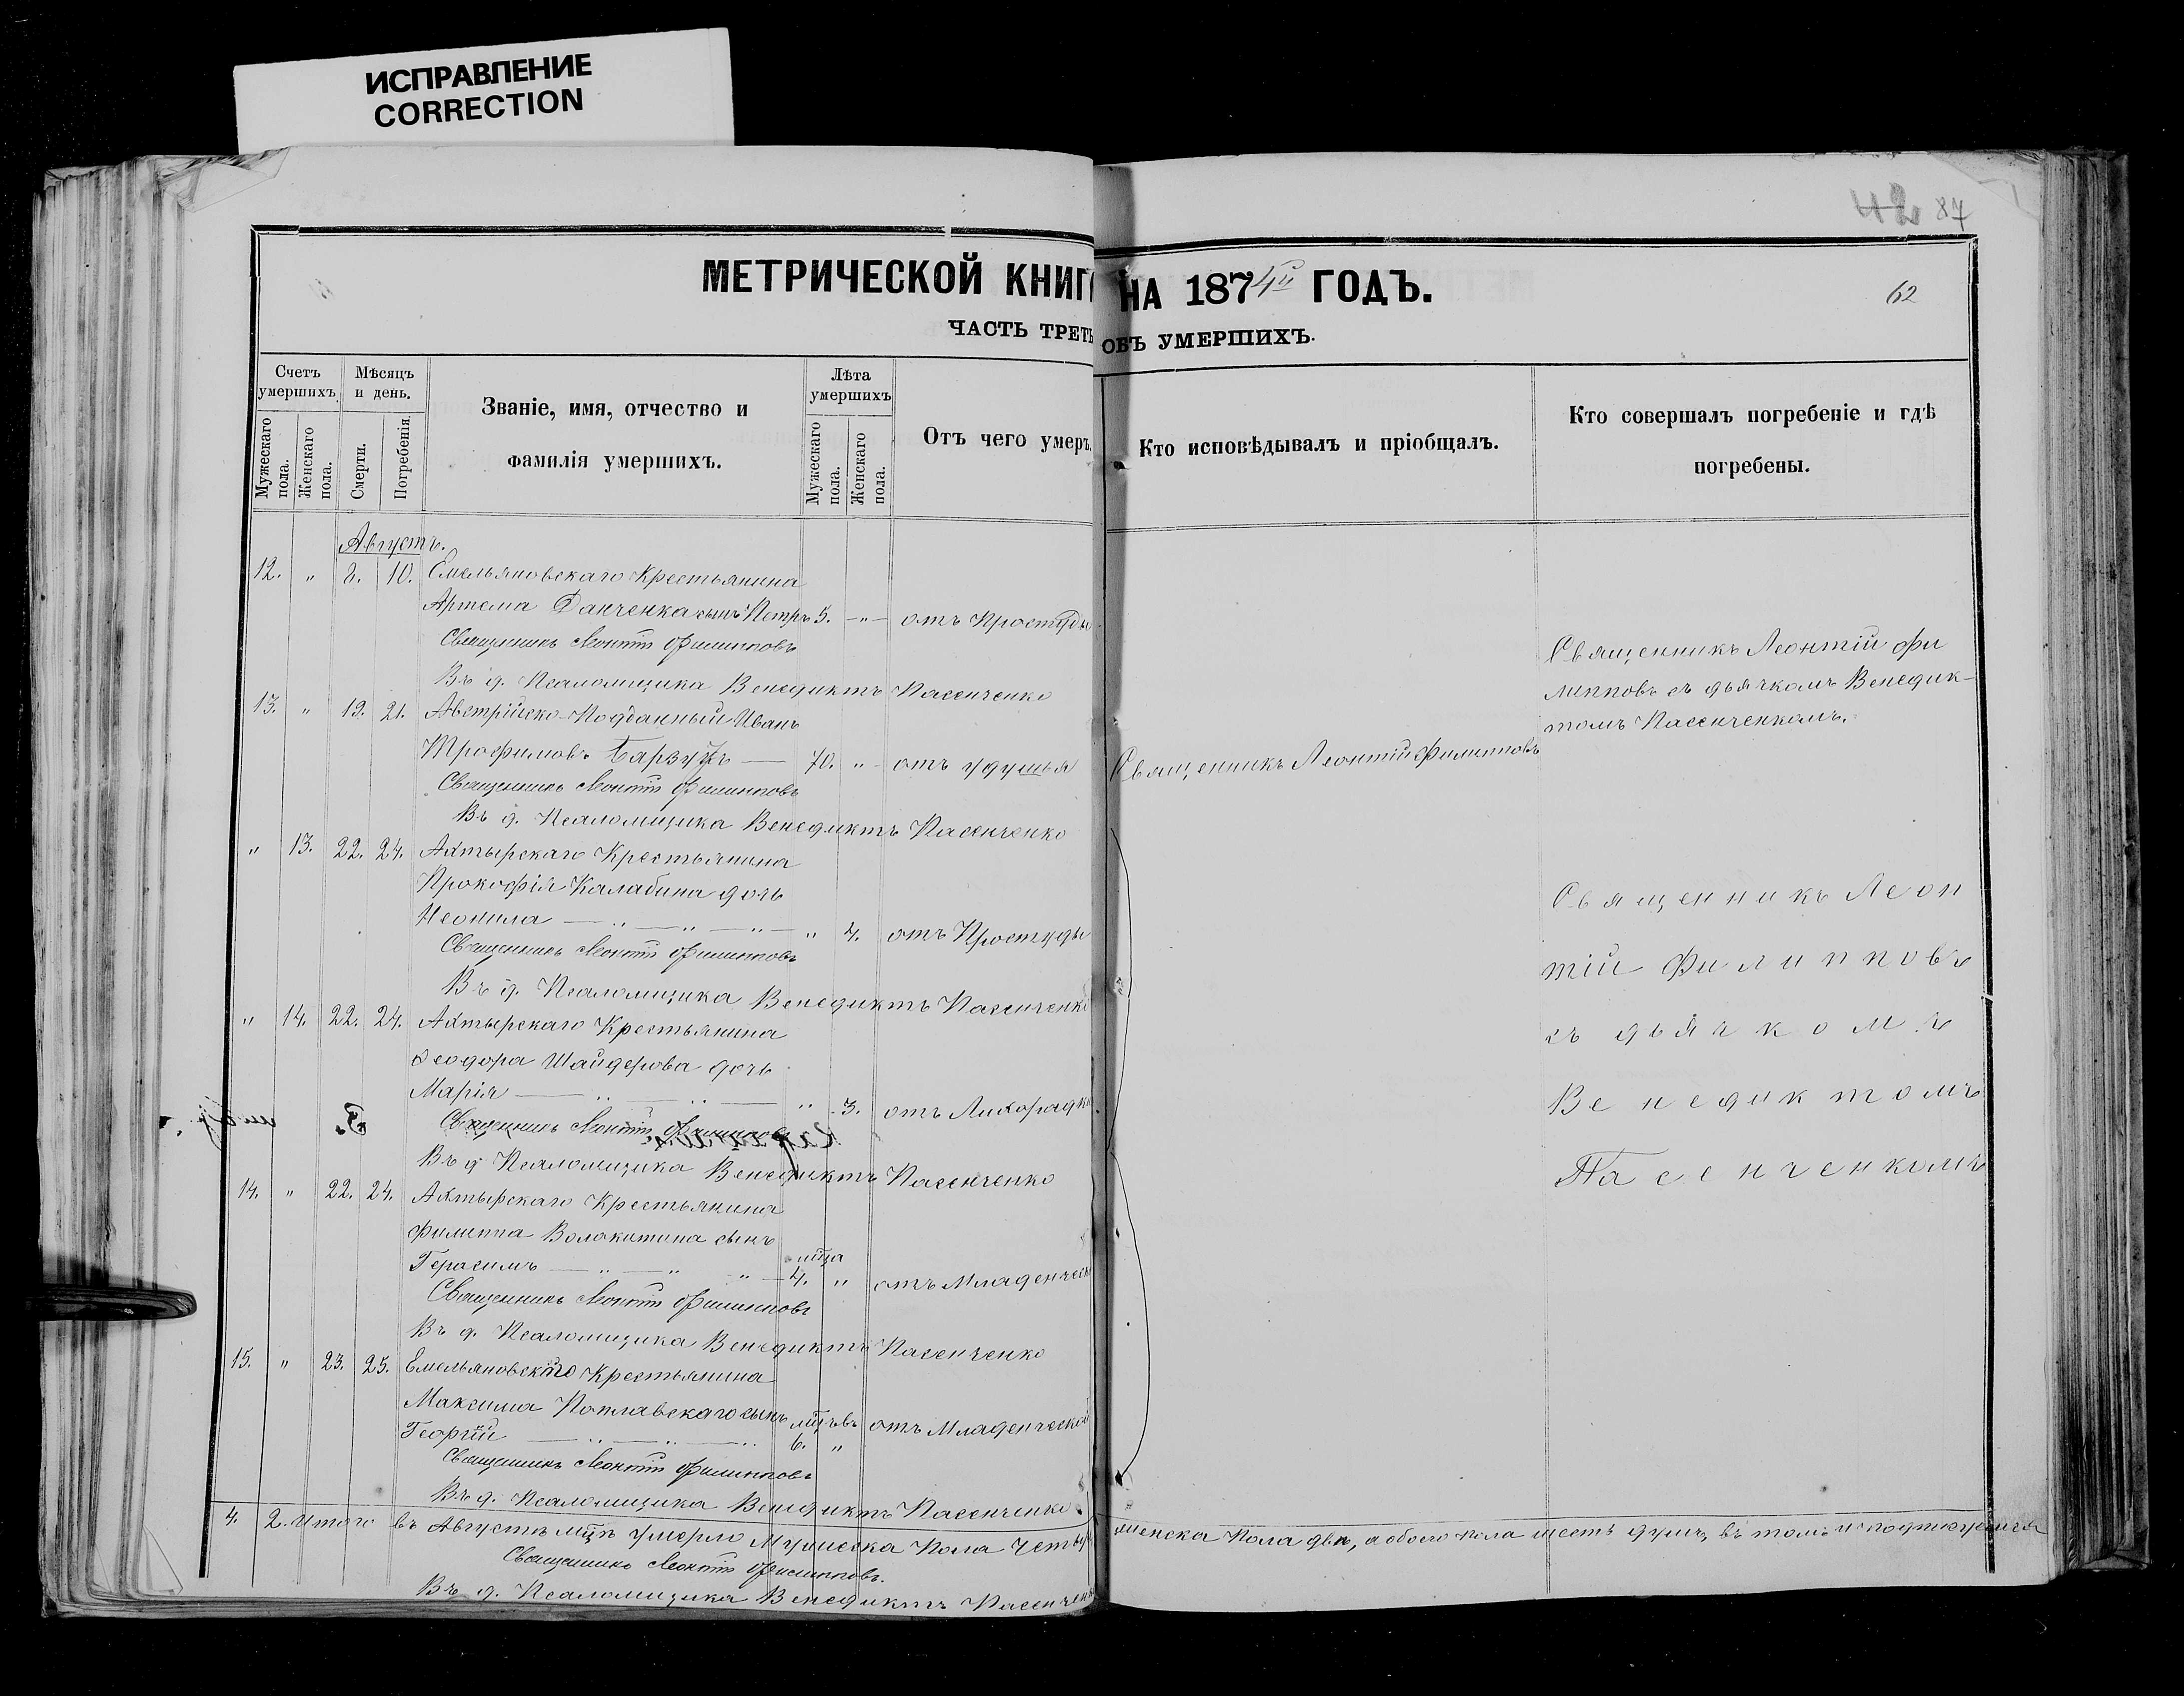 ИСПРАВЛЕНИЕ
CORRECTION
42 87
МЕТРИЧЕСКОЙ КНИГ НА 1874й ГОДЪ.
62
ЧАСТЬ ТРЕТЬ ОБЪ УМЕРШИХЪ.
Счетъ умершихъ.
Мужескаго пола.
Женскаго пола.
Мѣсяцъ и день.
Смерти.
Погребенія.
Званіе, имя, отчество и
фамилія умершихъ.
Лѣта умершихъ
Мужескаго пола.
Женскаго пола.
Отъ чего умеръ.
Кто исповѣдывалъ и пріобщалъ.
Кто совершалъ погребеніе и гдѣ
погребены.
Августъ.
12. " 8. 10. Емельяновскаго Крестьянина
Артема Данченка сынъ Петръ 5. —"— отъ Простуды
Священникъ Леонтій Филипповъ
Въ д. Псаломщика Венедиктъ Пасенченко
Священникъ Леонтій Фи
липповъ съ дьячкомъ Венедик-
томъ Пасенченкомъ.
13. " 19. 21. Австрійско-Подданный Иванъ
Трофимовъ — 70. " отъ удушья Священникъ Леонтій Филипповъ
Священникъ Леонтій Филипповъ
Въ д. Псаломщика Венедиктъ Пасенченко
" 13. 22. 24. Ахтырскаго Крестьянина
Прокофія Калабина дочь
Неонила — " — " — " — " 4. отъ Простуды
Священникъ Леонтій Филипповъ
Въ д. Псаломщика Венедиктъ Пасенченко
" 14. 22. 24. Ахтырскаго Крестьянина
Ѳеодора Шайдерова дочь
Марія — " — " — " 3. отъ Лихорадки
Священникъ Леонтій Филипповъ
Въ д. Псаломщика Венедиктъ Пасенченко
14. " 22. 24. Ахтырскаго Крестьянина
Филиппа Волокитина сынъ
Герасимъ — " — " " — мца 4. " отъ Младенческ
Священникъ Леонтій Филипповъ
Въ д. Псаломщика Венедиктъ Пасенченко
15. " 23. 25. Емельяновскаго Крестьянина
Максима Потлавскаго сынъ мцевъ отъ Младенческой
Георгій — " — " — " 6. "
Священникъ Леонтій Филипповъ
Въ д. Псаломщика Венедиктъ Пасенченко
Священникъ Леон
тій Филипповъ
съ дьячкомъ
Венедиктомъ
Пасенченкомъ
4. 2. Итого въ Августѣ мцѣ умерло Мужеска Пола Четы женска Пола двѣ, а обоего пола шесть душъ, въ томъ и подписуемся
Священникъ Леонтій Филипповъ.
Въ д. Псаломщика Венедиктъ Пасенчен